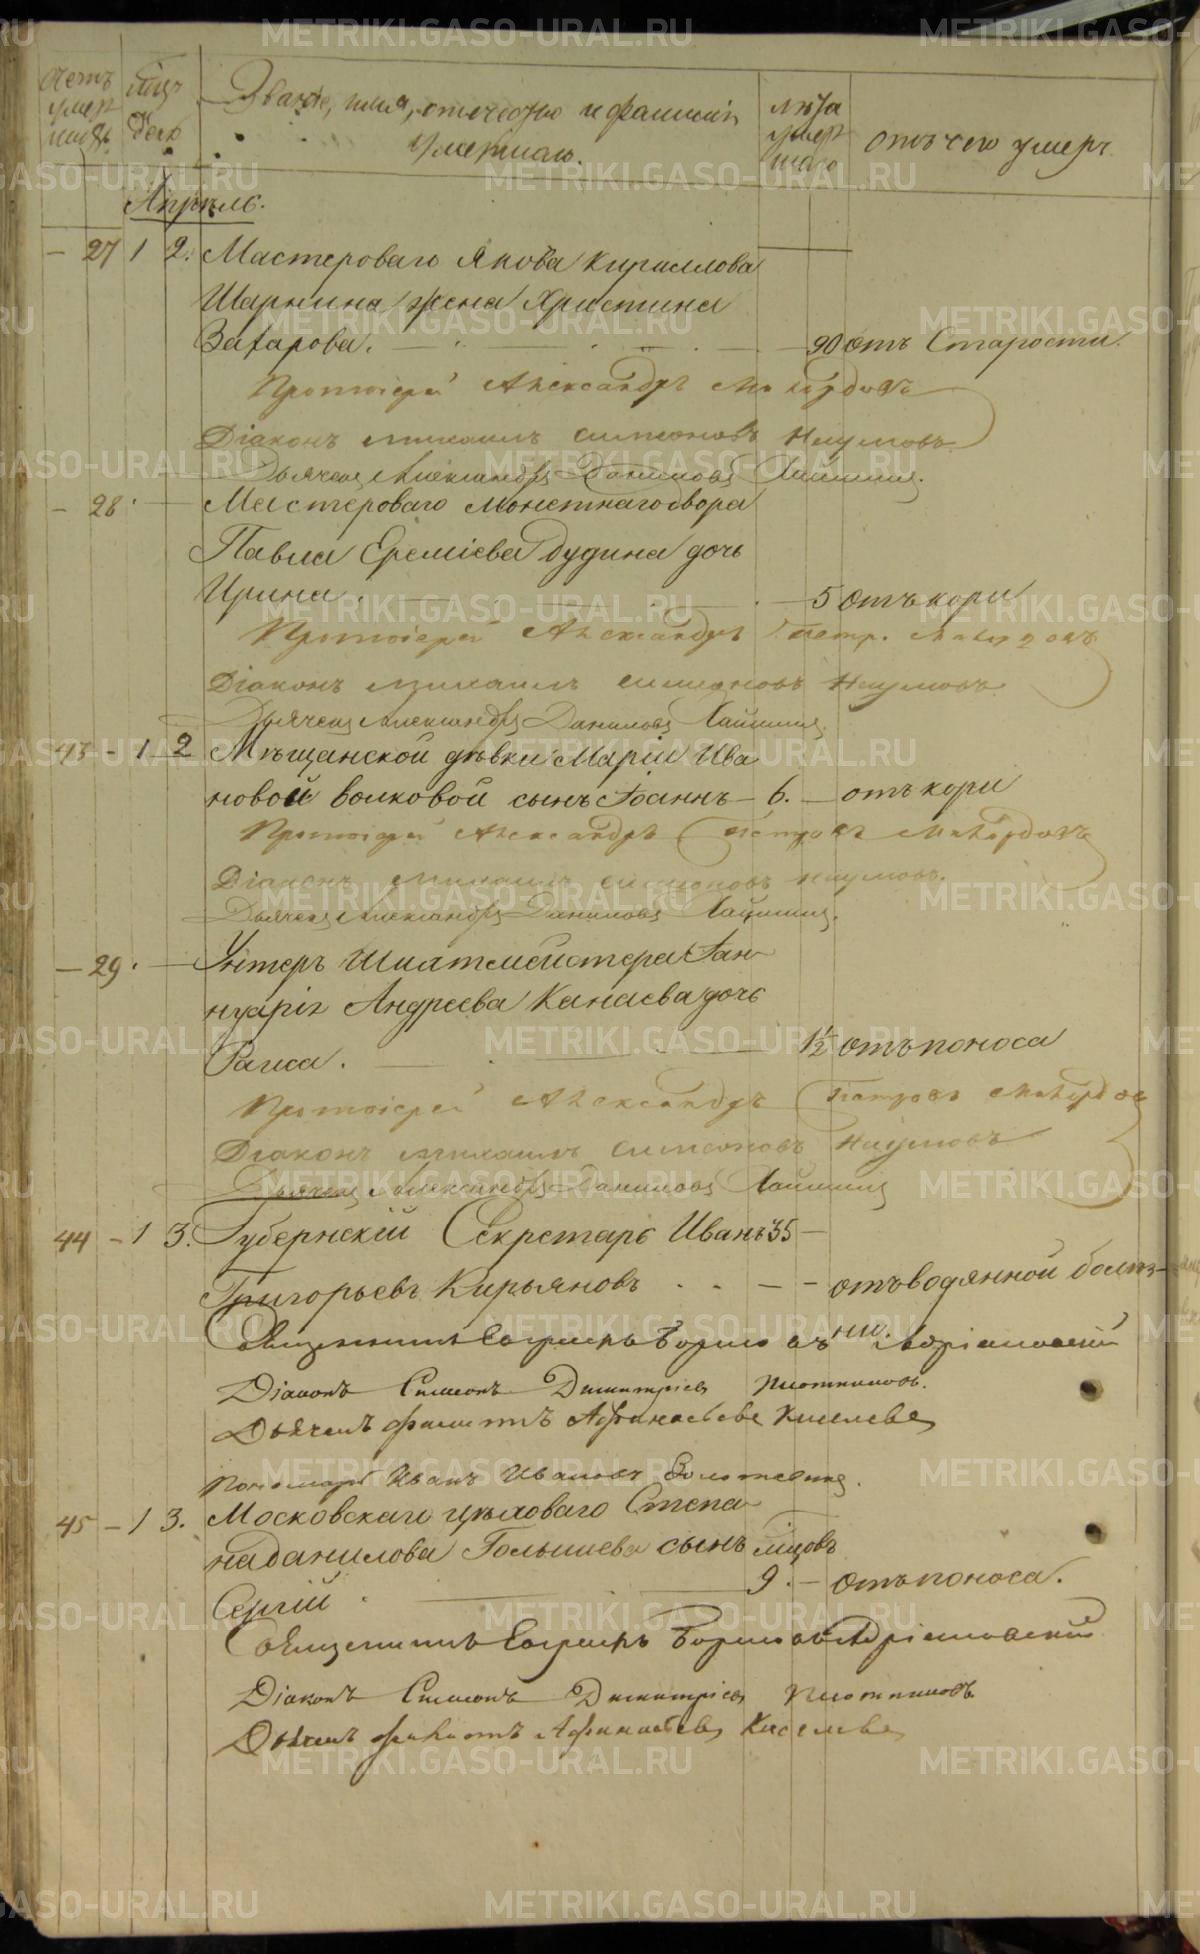 Счетъ умер шихъ.
Мѣс. День
Званіе, имя, отчество и фамилія умершаго.
лѣта умер шаго
отъ чего умеръ.
Апрѣль.
- 27 1 2. Мастероваго Якова Кириллова
жена Христина
Захарова. 90 отъ Старости.
Протоіерей Александръ
Діаконъ Михаилъ Симеоновъ Наумовъ
Дьячекъ Александръ Даниловъ
- 28. Мастероваго монетнаго двора
Павла Еремѣева Дудина дочь
Ирина. 5 отъ кори
Протоіерей Александръ Петр.
Діаконъ Михаилъ Симеоновъ Наумовъ
Дьячекъ Александръ Даниловъ
43 - 1 2 Мѣщанской дѣвки Маріи Ива
новой Волковой сынъ Іоаннъ - 6. - отъ кори
Протоіерей Александръ Петровъ
Діаконъ Михаилъ Симеоновъ Наумовъ.
Дьячекъ Александръ Даниловъ
- 29. Унтеръ Шихтмейстера Іан
нуарія Андреева Канаева дочь
Раиса. 1½ отъ поноса
Протоіерей Александръ Петровъ
Діаконъ Михаилъ Симеоновъ Наумовъ
Дьячекъ Александръ Даниловъ
44 - 1 3. Губернскій Секретарь Иванъ 35 -
Григорьевъ Кирьяновъ - - отъ водянной болѣз-
ни.
Священникъ Борисовъ
Діаконъ Симеонъ Димитріевъ Плотниковъ.
Дьячекъ Филиппъ Афанасьевъ Киселевъ
Пономарь Иванъ Ивановъ
45 - 1 3. Московскаго цѣховаго Степа
на Данилова Голышева сынъ мѣсцовъ
Сергій 9. - отъ поноса.
Священникъ Борисовъ
Діаконъ Симеонъ Димитріевъ Плотниковъ
Дьячекъ Филиппъ Афанасьевъ Киселевъ
METRIKI.GASO-URAL.RU